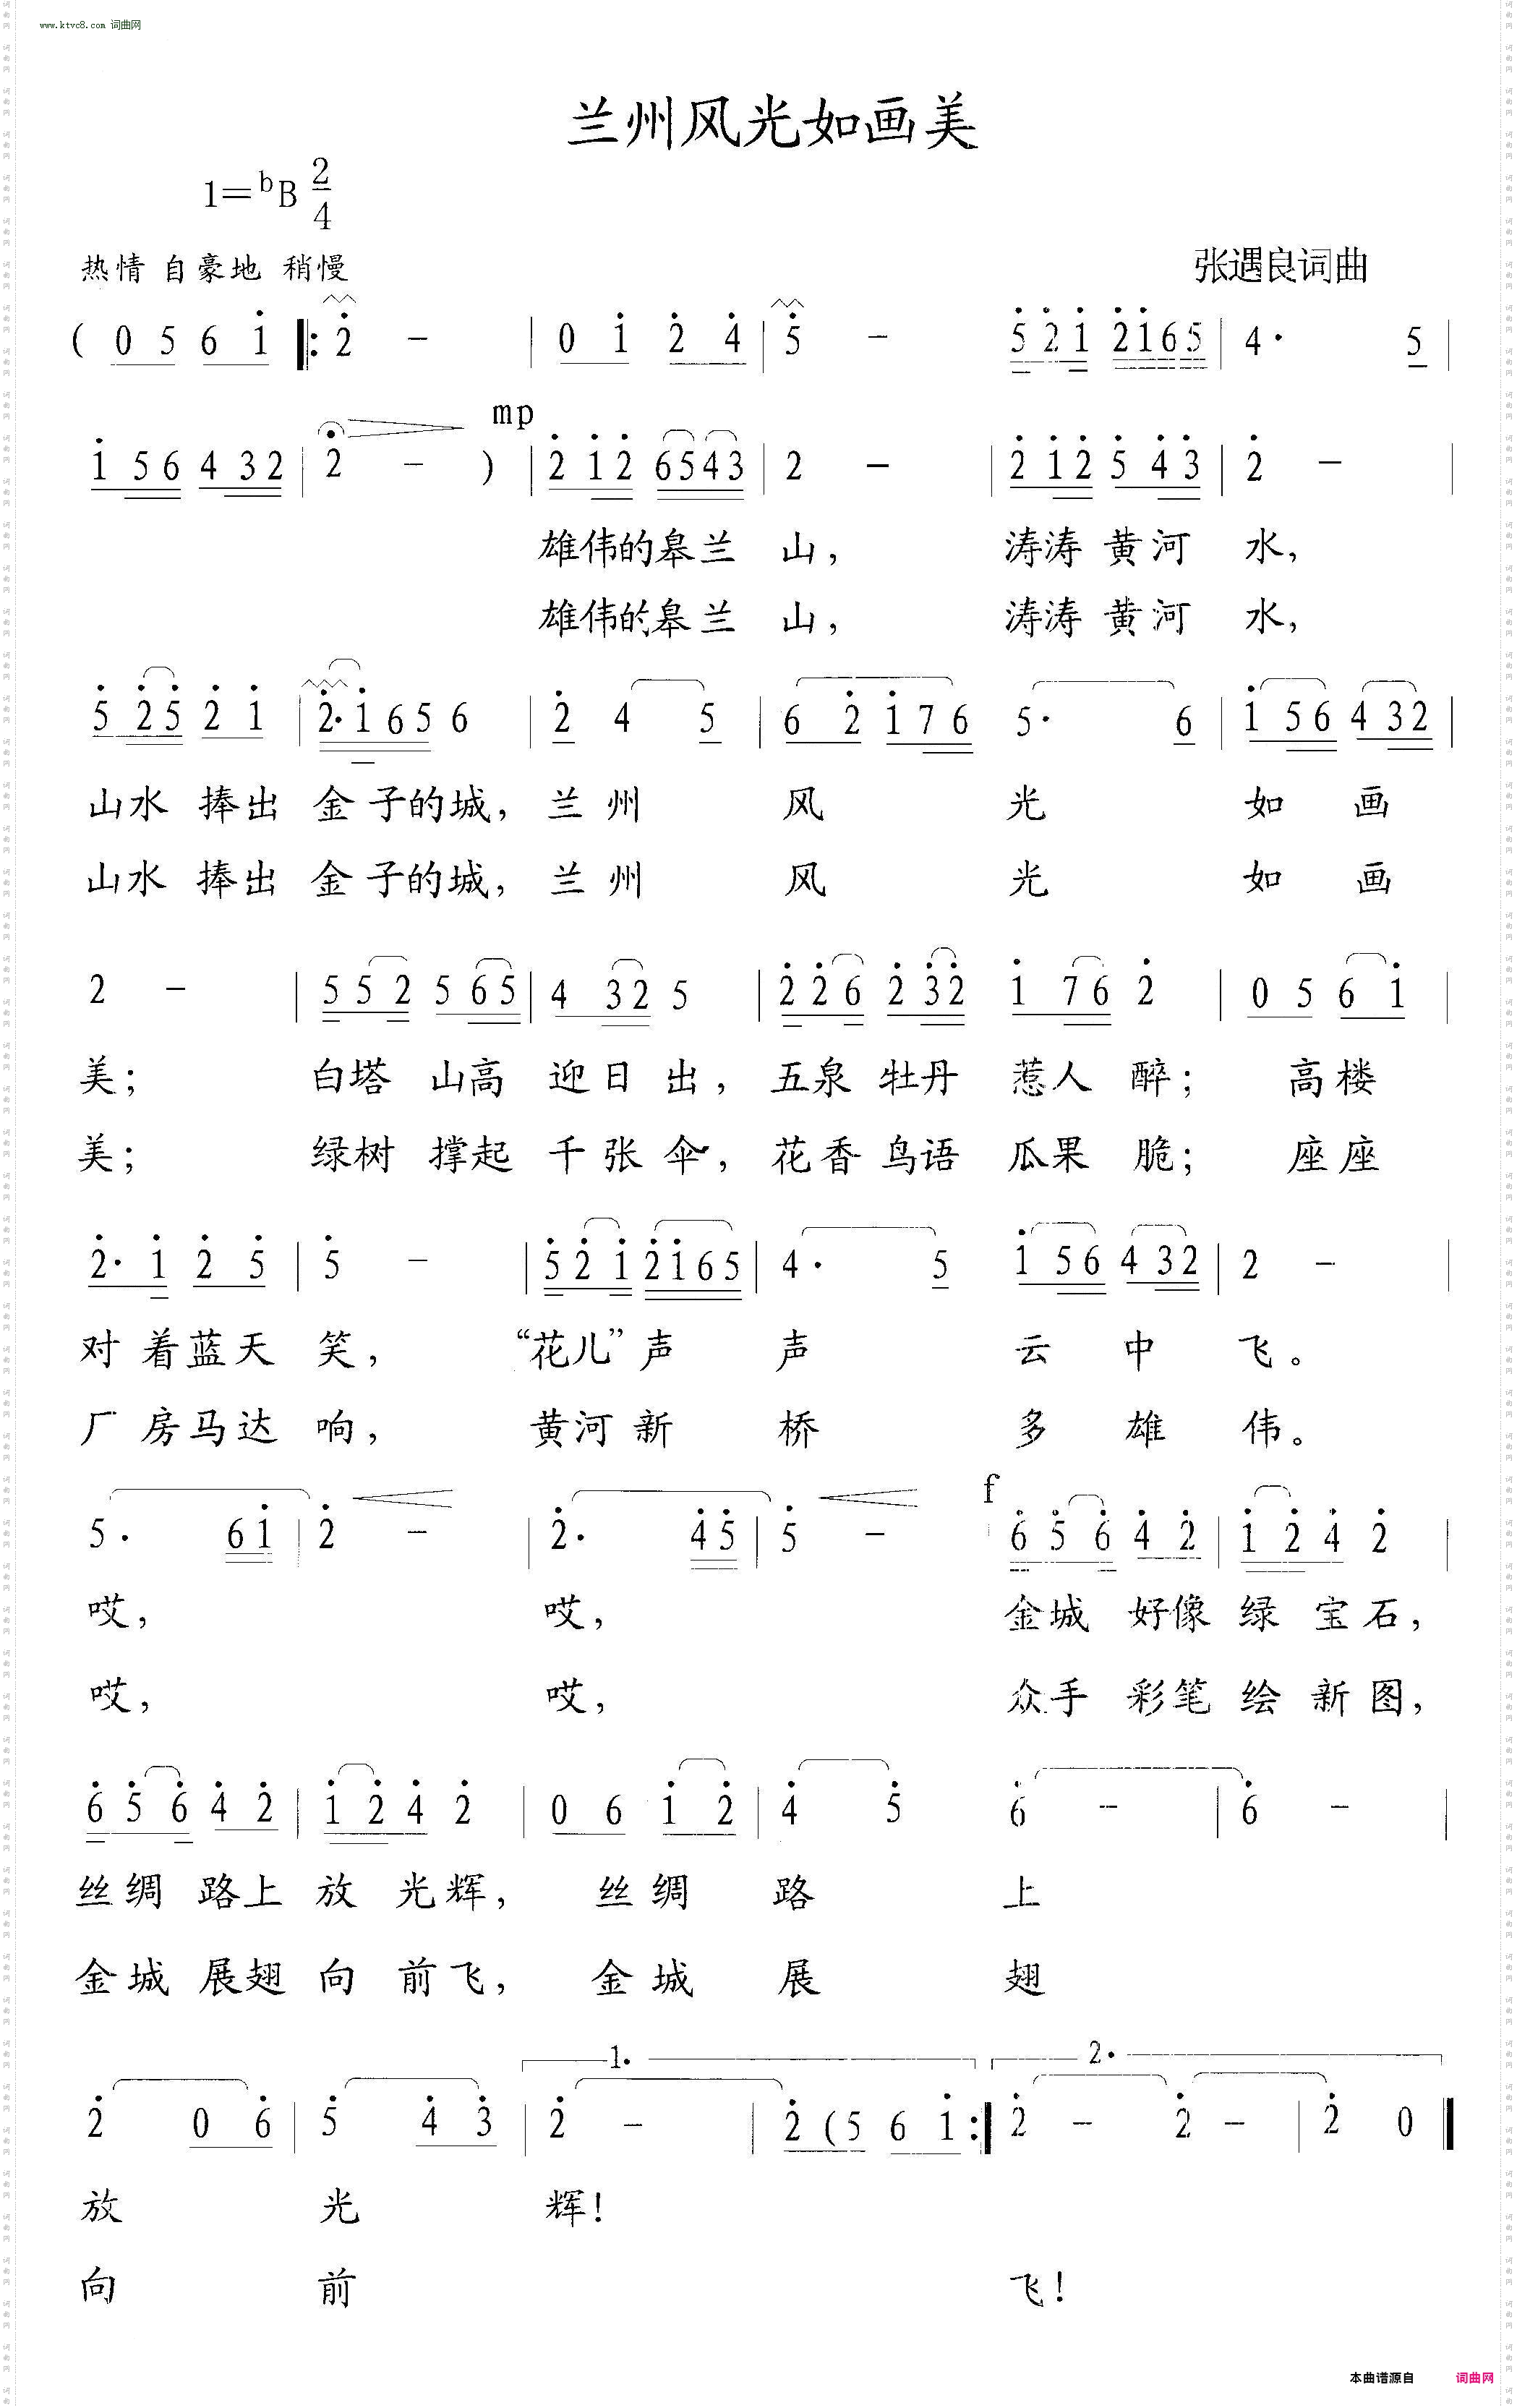 www.ktvc8.com 词曲网
兰州风光如画美
1=bB 2/4
热情 自豪地 稍慢
张遇良词曲
( 0 5 6 1 ‖: 2 - | 0 1 2 4 | 5 - | 5 2 1 2 1 6 5 | 4· 5 |
mp
1 5 6 4 3 2 | 2 - ) | 2 1 2 6 5 4 3 | 2 - | 2 1 2 5 4 3 | 2 - |
雄伟的皋兰 山, 涛涛 黄河 水,
雄伟的皋兰 山, 涛涛 黄河 水,
5 2 5 2 1 | 2· 1 6 5 6 | 2 4 5 | 6 2 1 7 6 5· 6 | 1 5 6 4 3 2 |
山水 捧出 金 子的城, 兰 州 风 光 如 画
山水 捧出 金 子的城, 兰 州 风 光 如 画
2 - | 5 5 2 5 6 5 | 4 3 2 5 | 2 2 6 2 3 2 | 1 7 6 2 | 0 5 6 1 |
美; 白塔 山高 迎日 出, 五泉 牡丹 惹人 醉; 高楼
美; 绿树 撑起 千张 伞, 花香 鸟语 瓜果 脆; 座座
2· 1 2 5 | 5 - | 5 2 1 2 1 6 5 | 4· 5 1 5 6 4 3 2 | 2 - |
对 着蓝天 笑, “花儿”声 声 云 中 飞。
厂 房马达 响, 黄河 新 桥 多 雄 伟。
f
5· 6 1 | 2 - | 2· 4 5 | 5 - | 6 5 6 4 2 | 1 2 4 2 |
哎, 哎, 金城 好像 绿 宝石,
哎, 哎, 众手 彩笔 绘 新图,
6 5 6 4 2 | 1 2 4 2 | 0 6 1 2 | 4 5 6 - | 6 - |
丝绸 路上 放 光辉, 丝绸 路 上
金城 展翅 向 前飞, 金城 展 翅
1. 2.
2 0 6 | 5 4 3 | 2 - | 2 ( 5 6 1 :‖ 2 - 2 - | 2 0 ‖
放 光 辉!
向 前 飞!
本曲谱源自 词曲网